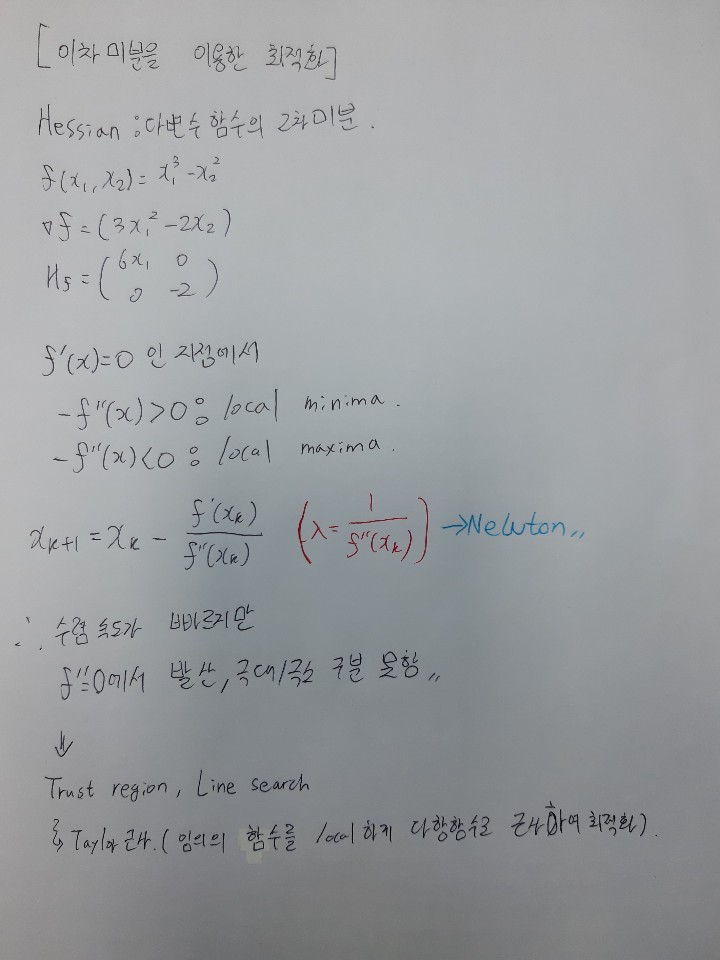 [이차 미분을 이용한 최적화]
Hessian : 다변수 함수의 2차 미분.
f(x₁, x₂) = x₁³ - x₂²
∇f = (3x₁² - 2x₂)
H_f = (6x₁ 0
0 -2)
f'(x)=0 인 지점에서
- f''(x)>0 : local minima.
- f''(x)<0 : local maxima.
x_{k+1} = x_k - f'(x_k) / f''(x_k) (λ = 1 / f''(x_k)) → Newton〃
∴ 수렴 속도가 빠르지만
f''=0에서 발산, 극대/극소 구분 못함〃
↓
Trust region, Line search
↳ Taylor 근사. (임의의 함수를 local하게 다항함수로 근사하여 최적화).